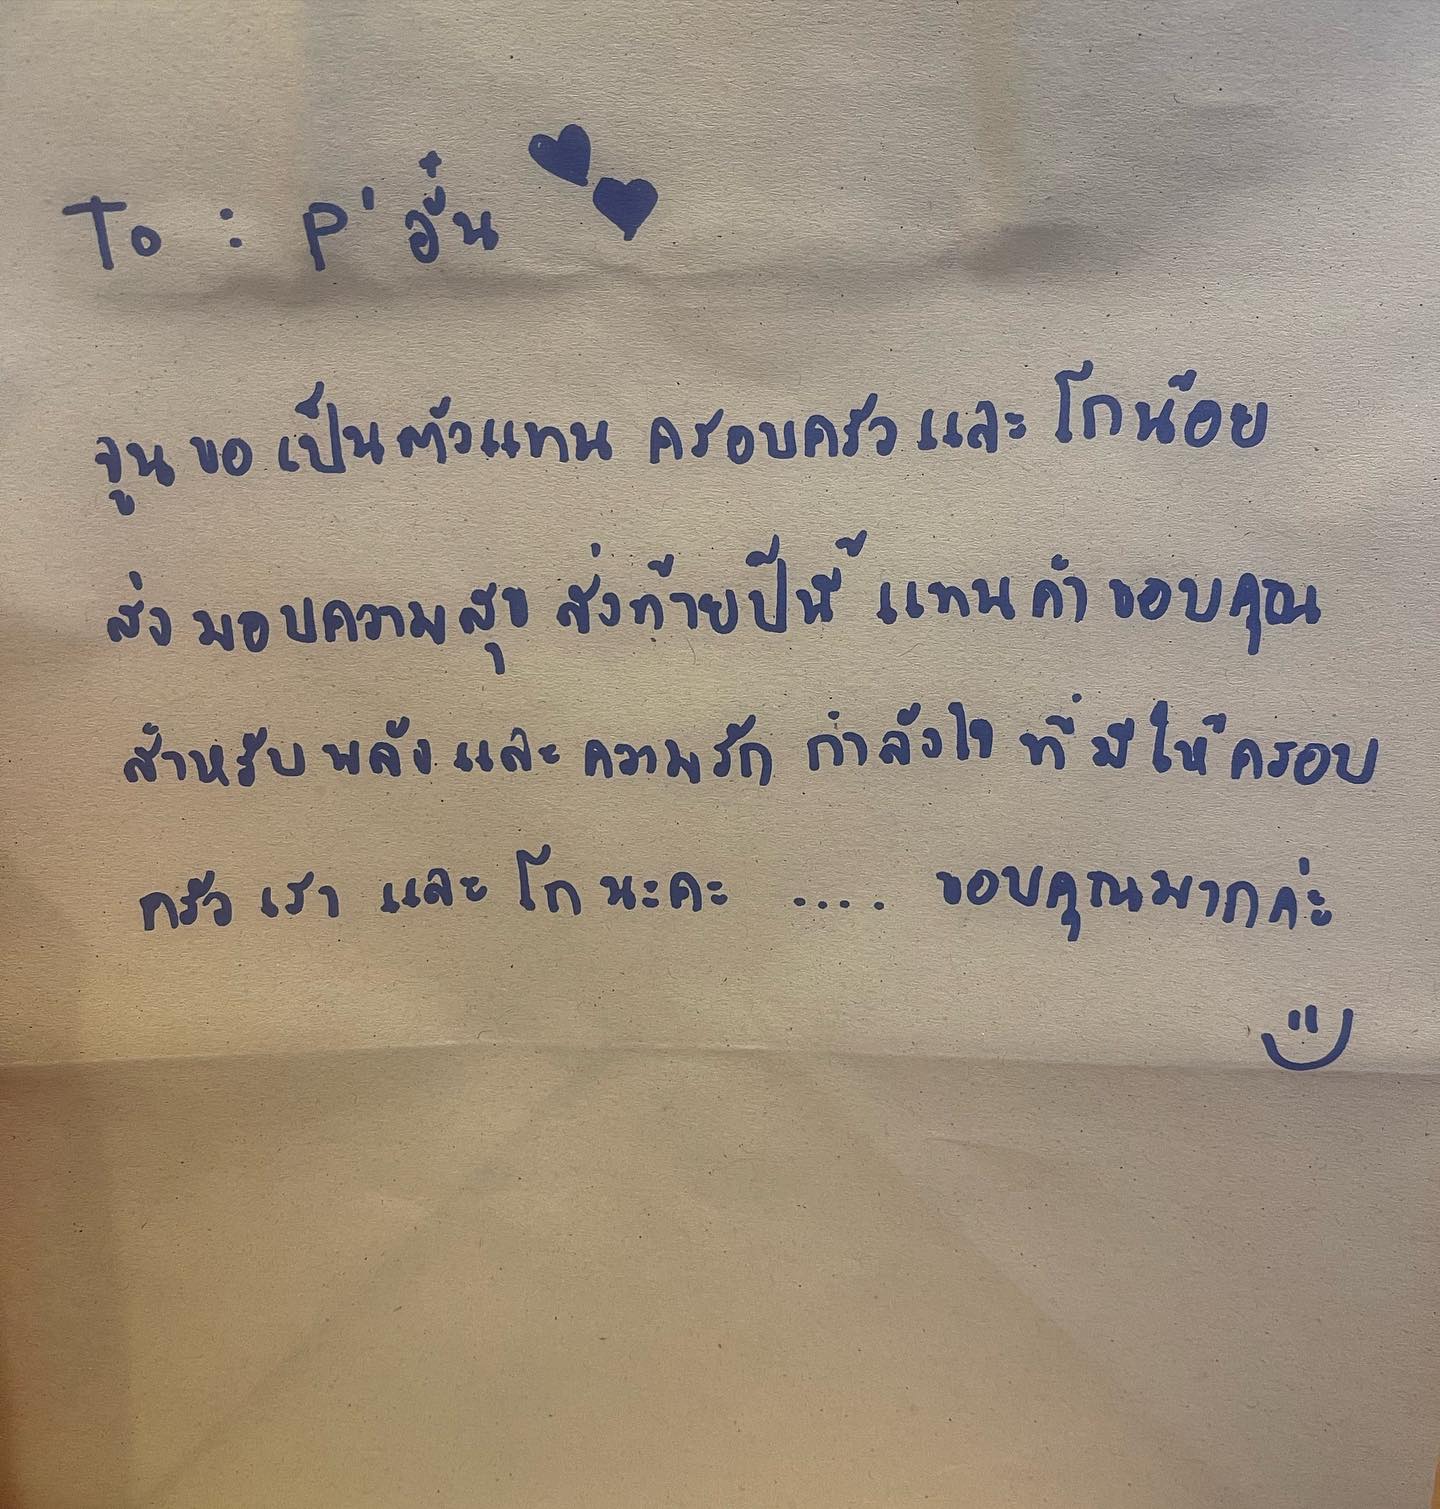 To : P' อุ๋น
จูน ขอ เป็นตัวแทน ครอบครัว และ โกน้อย
ส่ง มอบความสุข ส่งท้ายปีนี้ แทนคำ ขอบคุณ
สำหรับ พลัง และ ความรัก กำลังใจ ที่ มีให้ ครอบ
ครัว เรา และ โก นะคะ .... ขอบคุณมากค่ะ